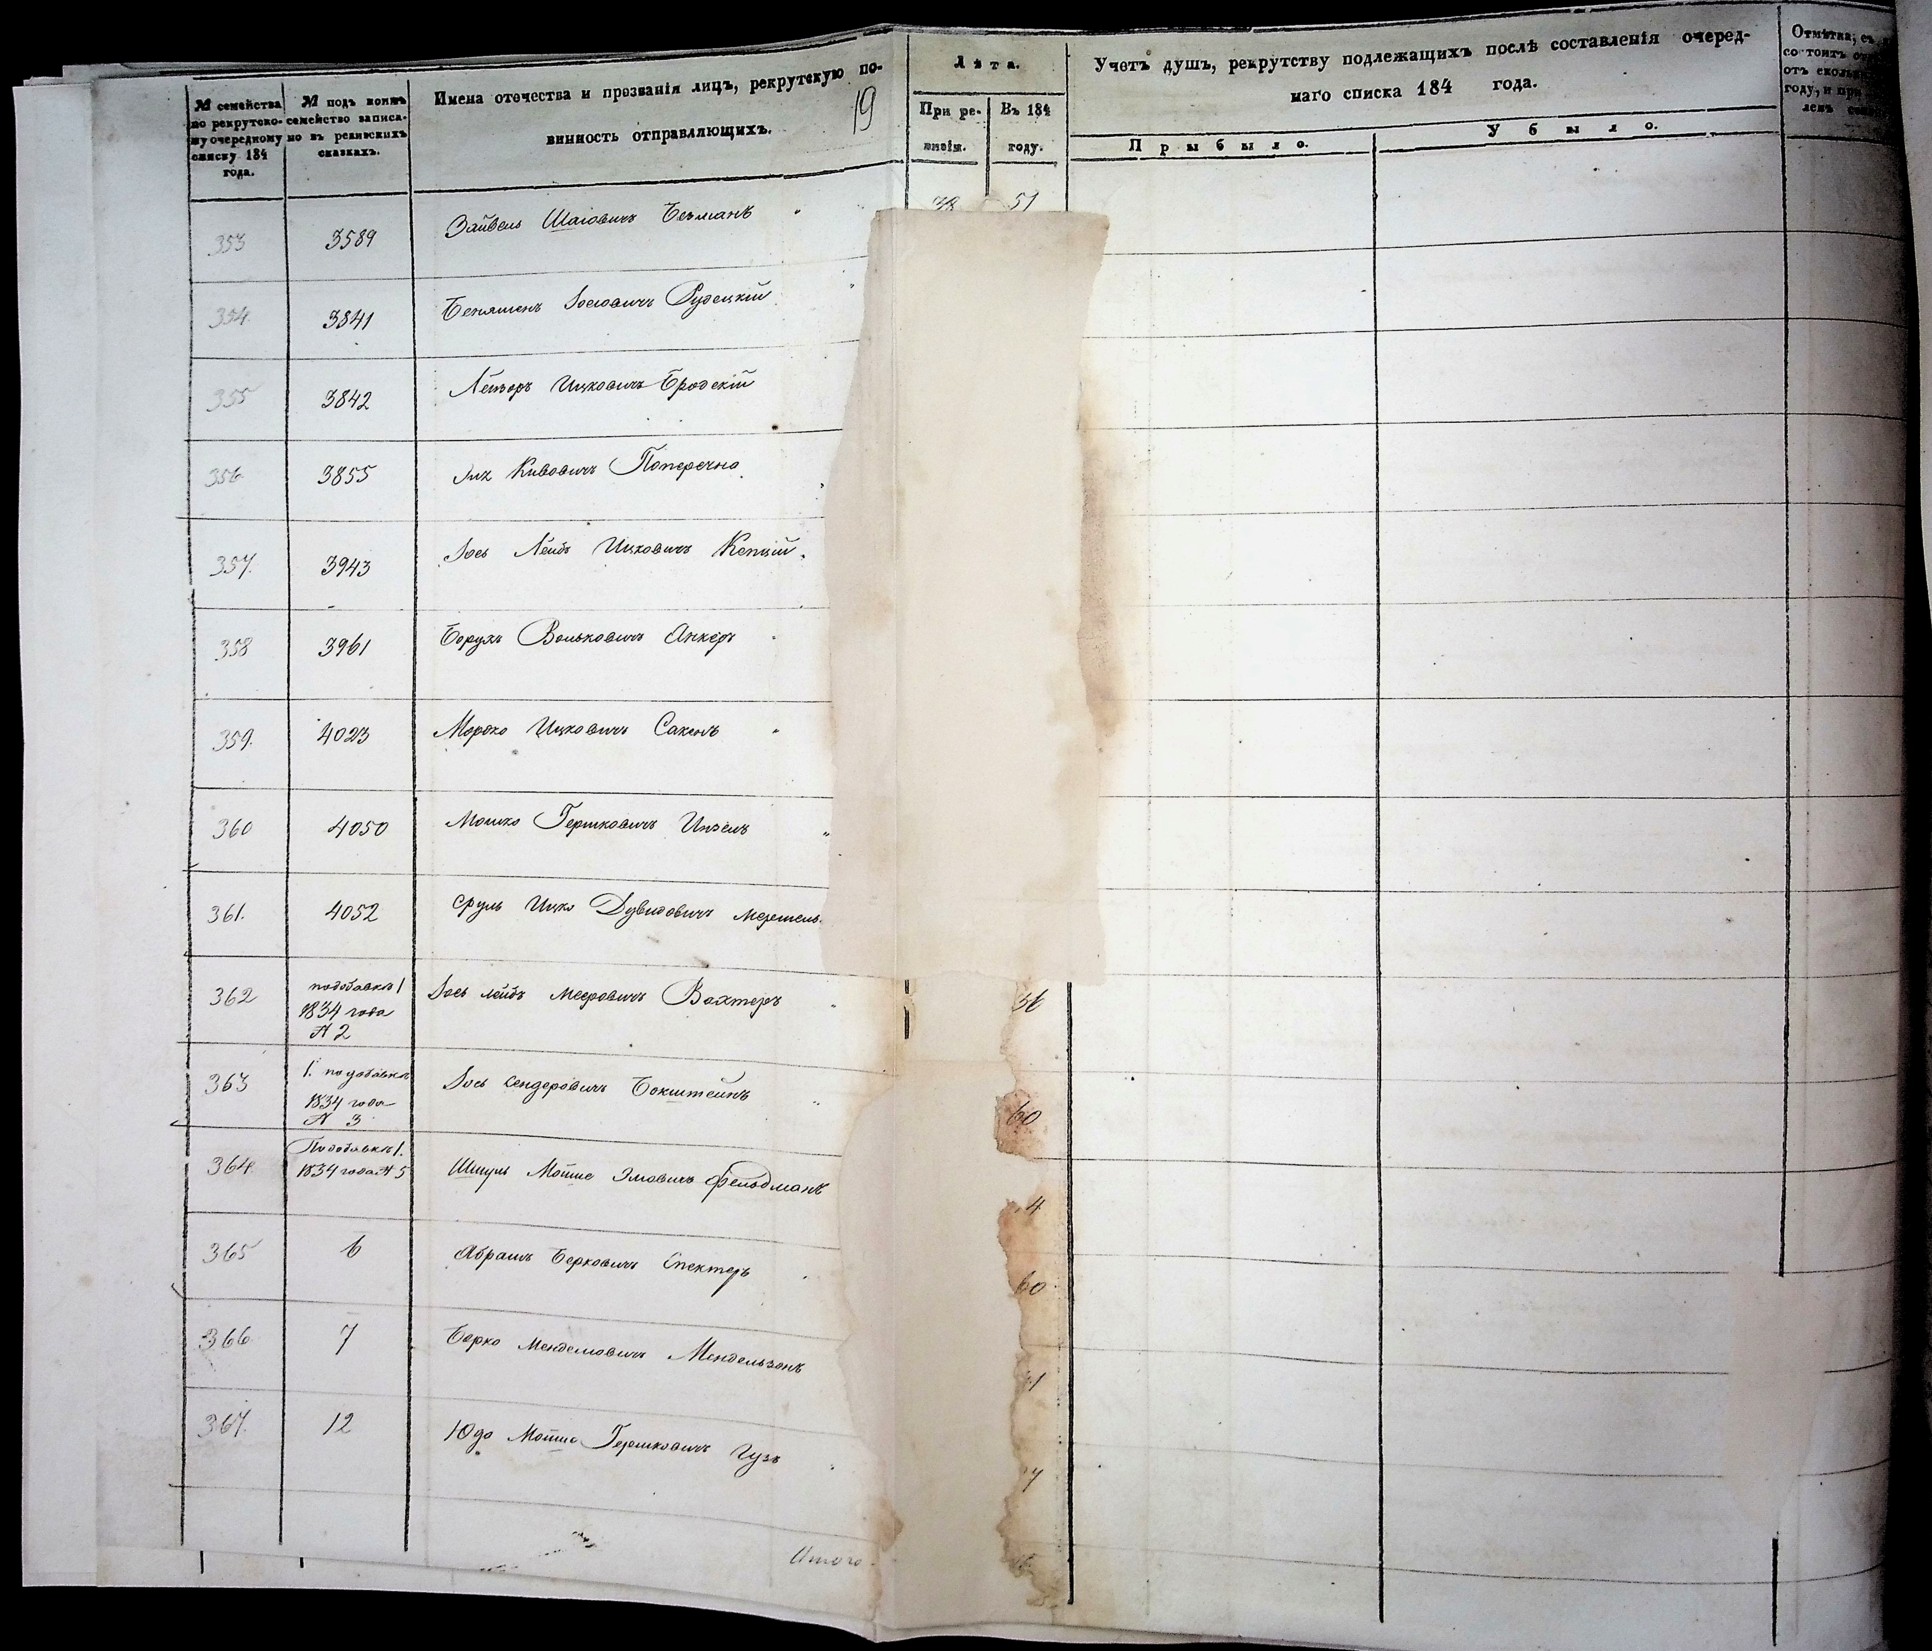 № семейства по рекрутско-му очередному списку 184 года.
№ подъ коимъ семейство записа-но въ ревизскихъ сказкахъ.
Имена отечества и прозванія лицъ, рекрутскую по-
винность отправляющихъ.
19
Лѣта.
При ре-визіи.
Въ 184 году.
Учетъ душъ, рекрутству подлежащихъ послѣ составленія очеред-
наго списка 184 года.
Прибыло.
Убыло.
Отмѣтка, съ
состоитъ
отъ
году, и при
лемъ
353 3589 Зайвель Шаіовичъ Безманъ 38 51
354 3841 Беньяменъ Іосіовичъ Рудецкій
355 3842 Лейзоръ Ицковичъ Бродскій
356 3855 Кивовичъ Поперечно
357. 3943 Іось Лейбъ Ицковичъ
358 3961 Борухъ Вольковичъ Анкеръ
359. 4023 Мордко Ицковичъ
360 4050 Мошко Гершковичъ
361. 4052 Сруль Ицко Дувидовичъ
362 подобавкѣ 1
1834 года
№ 2
Іось Лейбъ Мееровичъ Вахтеръ 36
363 1. подобавкѣ
1834 года
№ 3
Іось Сендеровичъ Бокштейнъ 60
364. Подобавкѣ 1.
1834 года № 5
Шмуль Мойше Эліовичъ Фельдманъ 4
365 6 Абрамъ Берковичъ Спекторъ 60
366 7 Берко Менделіовичъ Мендельзонъ 1
367. 12 Юдо Мойше Гершковичъ Гузъ 7
Итого